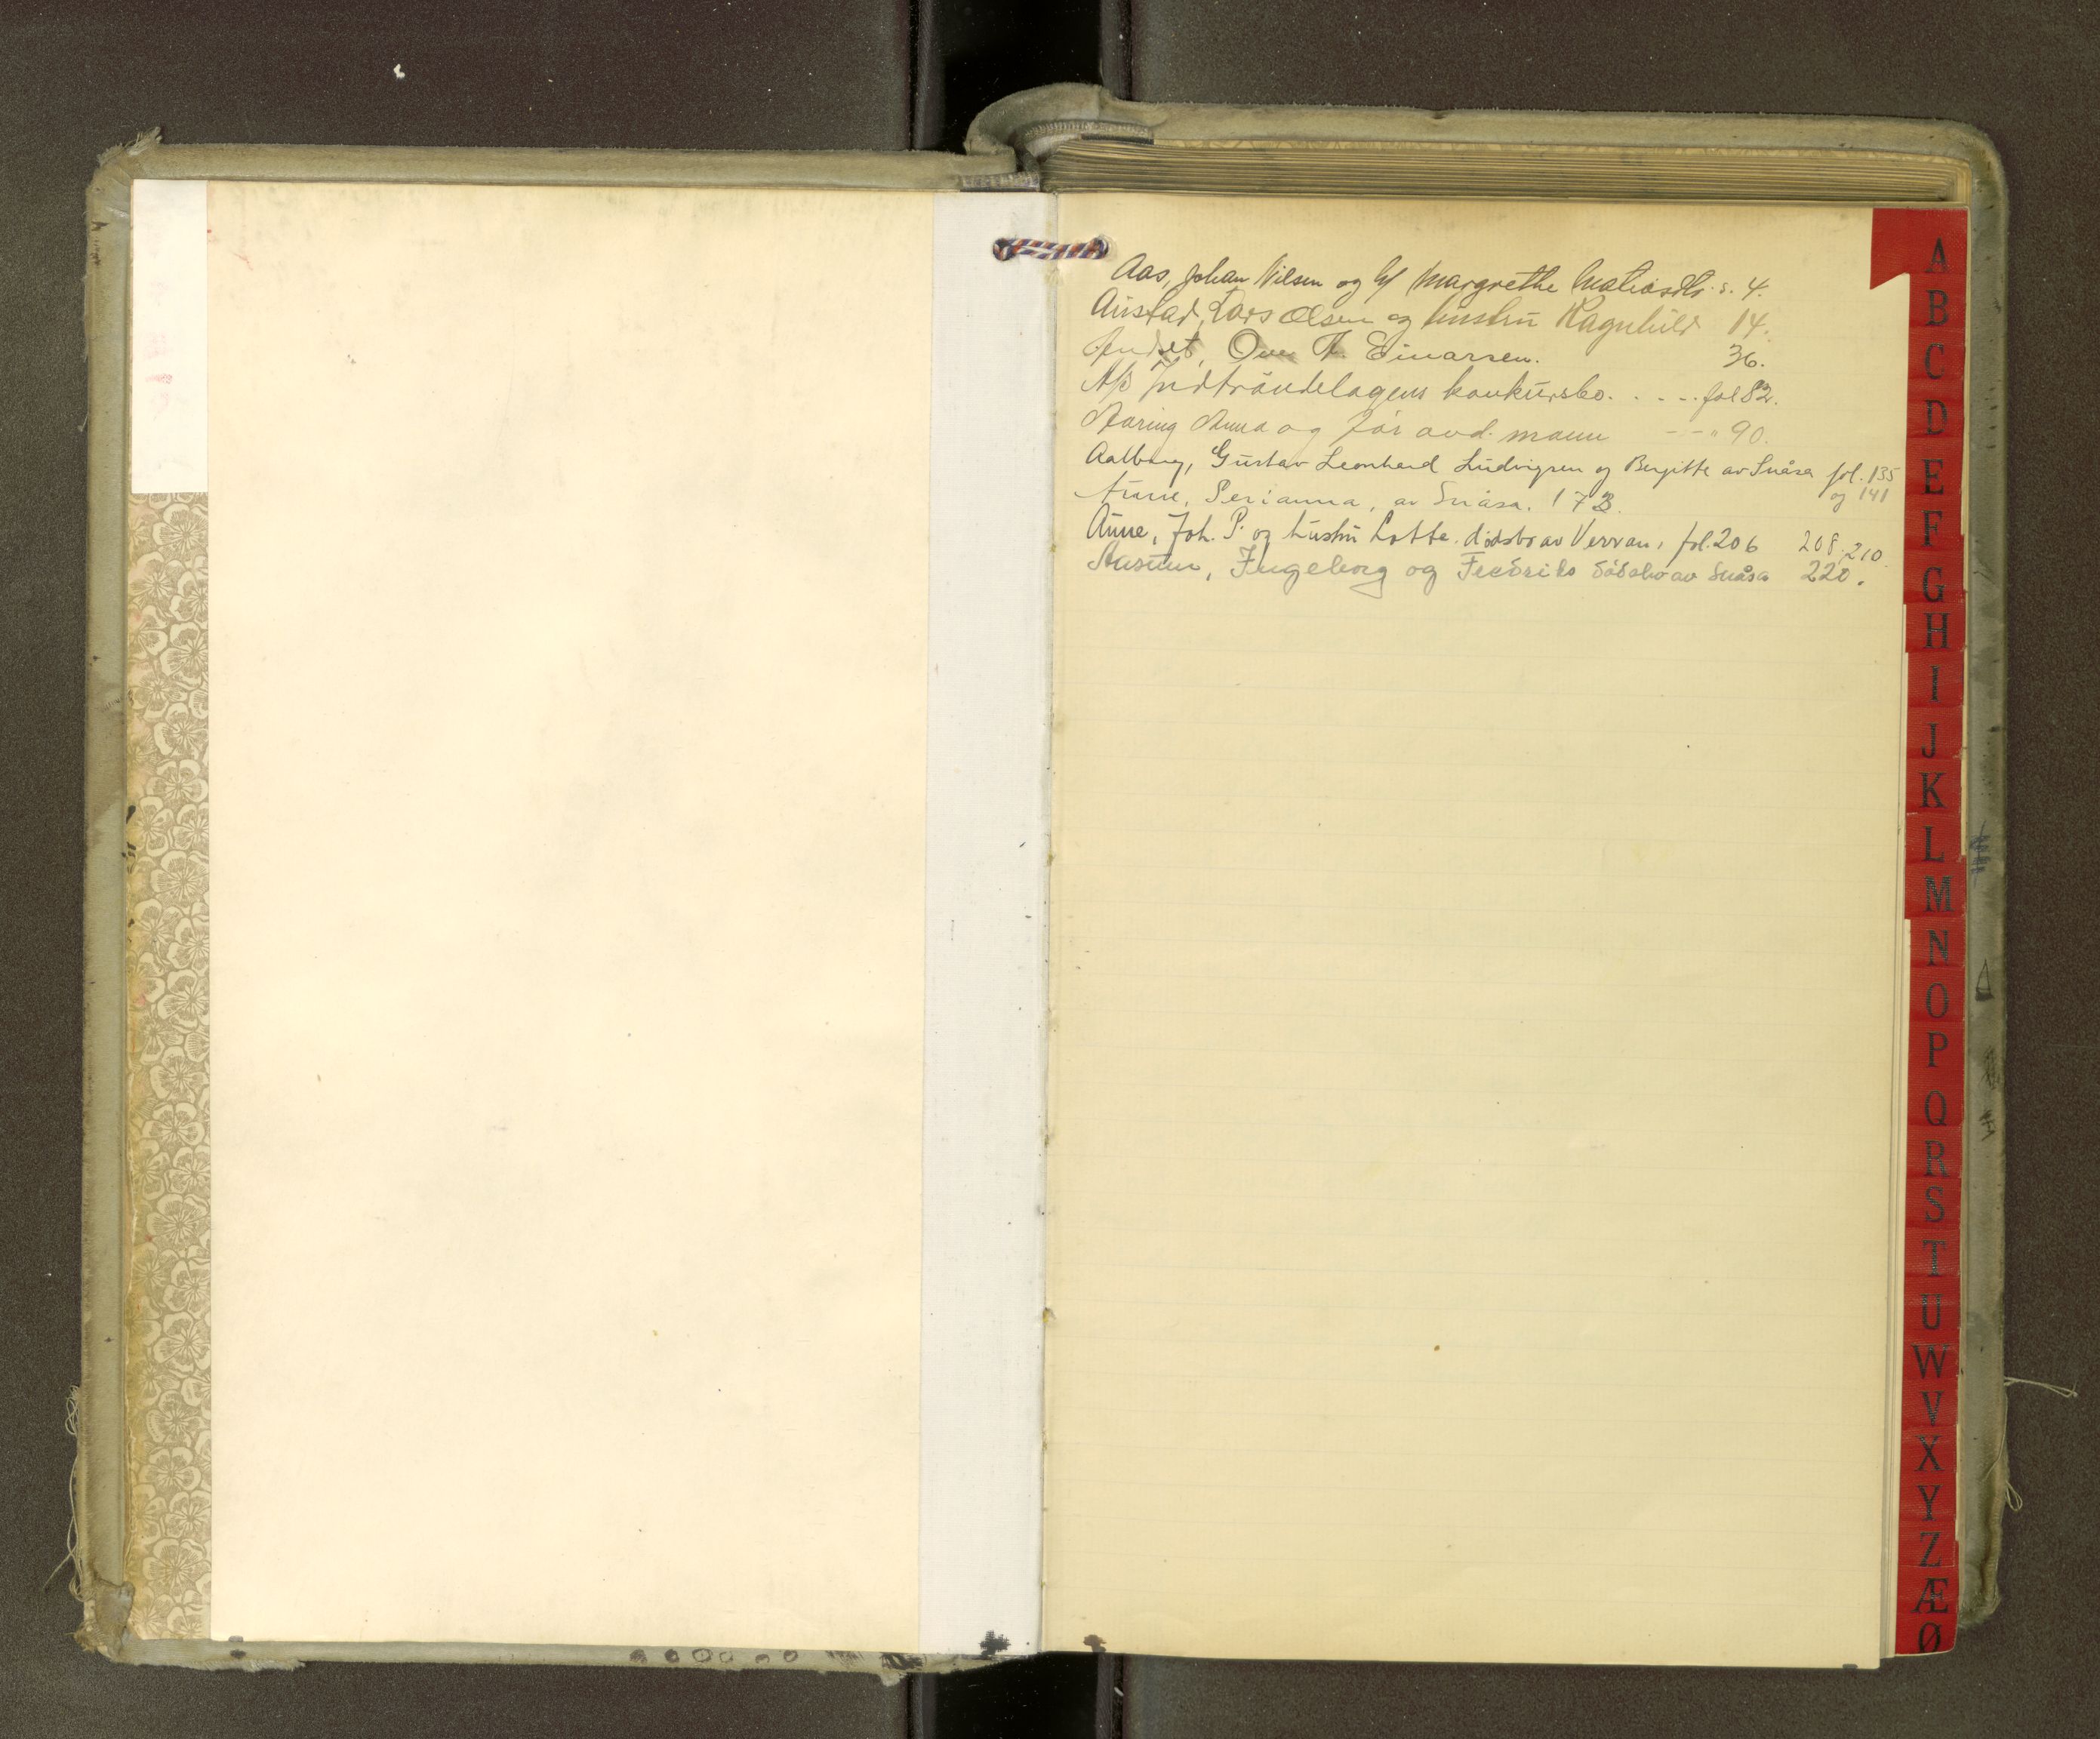 Aas, Johan Nilsen og hf Margrethe Matiasdtr. s. 4.
Austad, Lars Olsen og hustru Ragnhild 14.
Ove Einarsen. 36.
A/s Indtröndelagens konkursbo. . - - . fol 82.
Aaring Anna og før avd. mann - - " 90.
Aalberg, Gustav Leonhard Ludvigsen og Bergitte av Snåsa fol. 135
og 141
Aune, Perianna, av Snåsa. 173.
Aune, Joh. P. og hustru Lotte. dødsbo av Verran, fol. 206 208, 210.
Ingeborg og Fredriks dødsbo av Snåsa 220.
A
B
C
D
E
F
G
H
I
J
K
L
M
N
O
P
Q
R
S
T
U
W
V
X
Y
Z
Æ
Ø